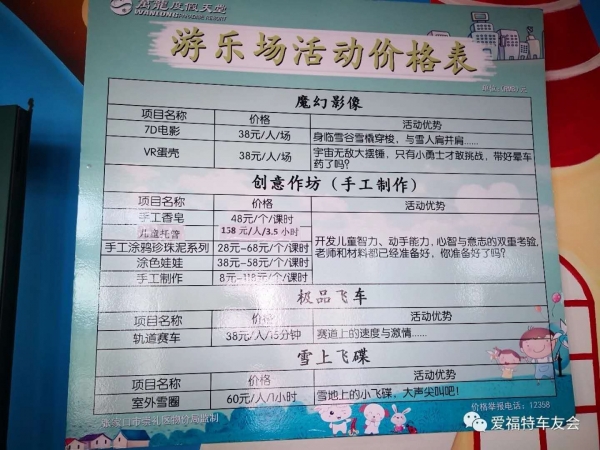 萬龍度假天堂
WANLONG PARADISE RESORT
游乐场活动价格表
魔幻影像
项目名称 价格 活动优势
7D电影 38元/人/场 身临雪谷雪橇穿梭，与雪人肩并肩......
VR蛋壳 38元/人/场 宇宙无敌大摆锤，只有小勇士才敢挑战，带好晕车
药了吗？
创意作坊（手工制作）
项目名称 价格 活动优势
手工香皂 48元/个/课时
儿童托管 158元/人/3.5小时
手工涂鸦珍珠泥系列 28元-68元/个/课时
开发儿童智力、动手能力，心智与意志的双重考验，
老师和材料都已经准备好，你准备好了吗？
涂色娃娃 38元-58元/个/课时
手工制作 8元-118元/个/课时
极品飞车
项目名称 价格 活动优势
轨道赛车 38元/人/15分钟 赛道上的速度与激情......
雪上飞碟
项目名称 价格 活动优势
室外雪圈 60元/人/1小时 雪地上的小飞碟，大声尖叫吧！
张家口市崇礼区物价局监制
价格举报电话：12358
爱福特车友会